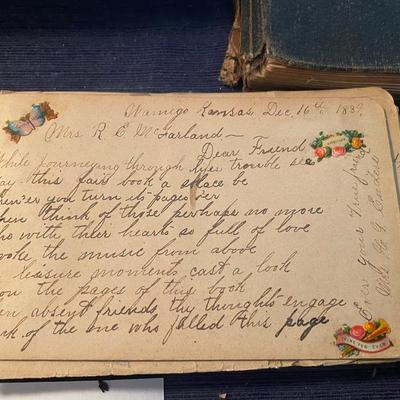 Wamego Kansas Dec. 16th 1889,
Mrs. R. E. McFarland —
Dear Friend
While Journeying through lifes trouble see
ay this fair book a place be
hen'er you turn its pages o'er
hen think of those perhaps no more
ho with theer hearts so full of love
the music from above
leasure moments cast a look
on the pages of this book
en absent friends thy thoughts engage
nk of the one who filled this page
Ever your true friend
Mrs
FOR EVER